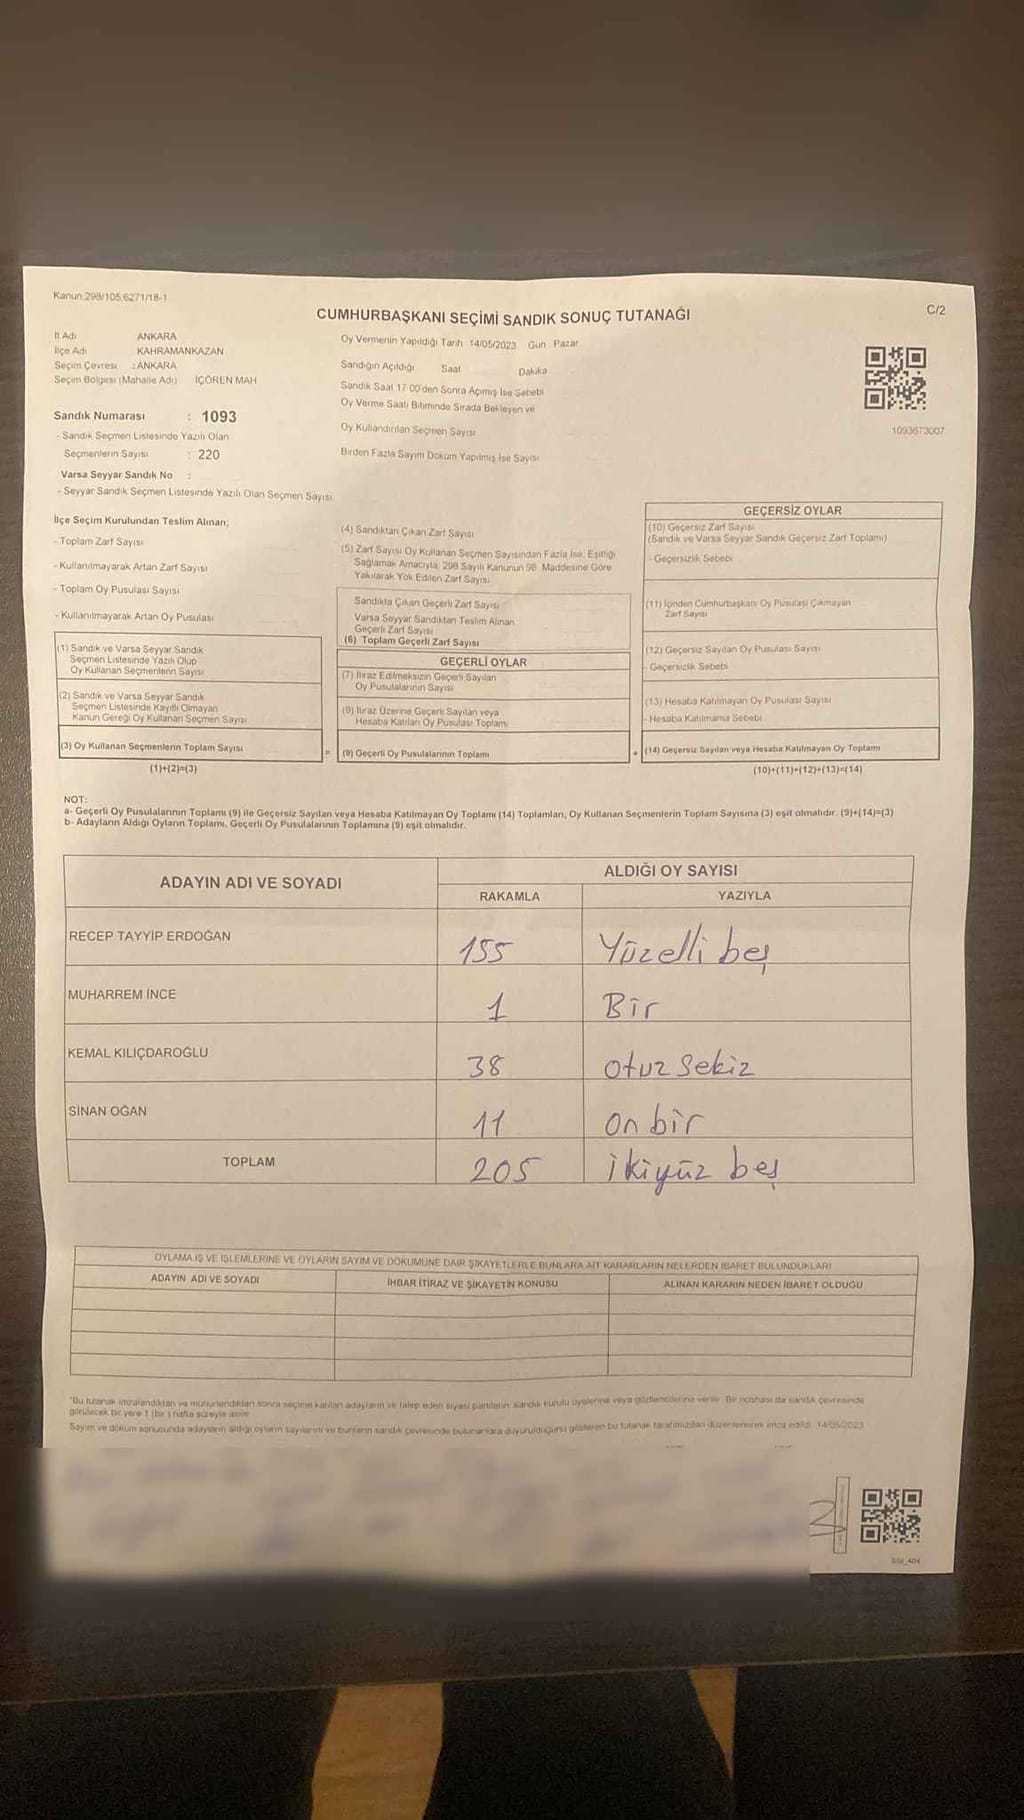 Kanun:298/105,6271/18-1
C/2
CUMHURBAŞKANI SEÇİMİ SANDIK SONUÇ TUTANAĞI
İl Adı ANKARA
İlçe Adı KAHRAMANKAZAN
Seçim Çevresi :ANKARA
Seçim Bölgesi (Mahalle Adı) İÇÖREN MAH
Sandık Numarası : 1093
- Sandık Seçmen Listesinde Yazılı Olan
Seçmenlerin Sayısı : 220
Varsa Seyyar Sandık No :
- Seyyar Sandık Seçmen Listesinde Yazılı Olan Seçmen Sayısı
Oy Vermenin Yapıldığı Tarih 14/05/2023 Gün Pazar
Sandığın Açıldığı Saat Dakika
Sandık Saat 17 00'den Sonra Açımış İse Sebebi
Oy Verme Saati Bitiminde Sırada Bekleyen ve
Oy Kullandırılan Seçmen Sayısı
Birden Fazla Sayım Döküm Yapılmış İse Sayısı
1093673007
İlçe Seçim Kurulundan Teslim Alınan;
- Toplam Zarf Sayısı
- Kullanılmayarak Artan Zarf Sayısı
- Toplam Oy Pusulası Sayısı
- Kullanılmayarak Artan Oy Pusulası
(1) Sandık ve Varsa Seyyar Sandık
Seçmen Listesinde Yazılı Olup
Oy Kullanan Seçmenlerin Sayısı
(2) Sandık ve Varsa Seyyar Sandık
Seçmen Listesinde Kayıtlı Olmayan
Kanun Gereği Oy Kullanan Seçmen Sayısı
(3) Oy Kullanan Seçmenlerin Toplam Sayısı
(1)+(2)=(3)
(4) Sandıktan Çıkan Zarf Sayısı
(5) Zarf Sayısı Oy Kullanan Seçmen Sayısından Fazla İse, Eşitliği
Sağlamak Amacıyla, 298 Sayılı Kanunun 98. Maddesine Göre
Yakılarak Yok Edilen Zarf Sayısı
Sandıkta Çıkan Geçerli Zarf Sayısı
Varsa Seyyar Sandıktan Teslim Alınan
Geçerli Zarf Sayısı
(6) Toplam Geçerli Zarf Sayısı
GEÇERLİ OYLAR
(7) İtiraz Edilmeksizin Geçerli Sayılan
Oy Pusulalarının Sayısı
(8) İtiraz Üzerine Geçerli Sayılan veya
Hesaba Katılan Oy Pusulası Toplamı
= (9) Geçerli Oy Pusulalarının Toplamı +
GEÇERSİZ OYLAR
(10) Geçersiz Zarf Sayısı
(Sandık ve Varsa Seyyar Sandık Geçersiz Zarf Toplamı)
- Geçersizlik Sebebi
(11) İçinden Cumhurbaşkanı Oy Pusulası Çıkmayan
Zarf Sayısı
(12) Geçersiz Sayılan Oy Pusulası Sayısı
- Geçersizlik Sebebi
(13) Hesaba Katılmayan Oy Pusulası Sayısı
- Hesaba Katılmama Sebebi
(14) Geçersiz Sayılan veya Hesaba Katılmayan Oy Toplamı
(10)+(11)+(12)+(13)=(14)
NOT:
a- Geçerli Oy Pusulalarının Toplamı (9) ile Geçersiz Sayılan veya Hesaba Katılmayan Oy Toplamı (14) Toplamları, Oy Kullanan Seçmenlerin Toplam Sayısına (3) eşit olmalıdır. (9)+(14)=(3)
b- Adayların Aldığı Oyların Toplamı, Geçerli Oy Pusulalarının Toplamına (9) eşit olmalıdır.
ADAYIN ADI VE SOYADI
ALDIĞI OY SAYISI
RAKAMLA YAZIYLA
RECEP TAYYİP ERDOĞAN 155 Yüzelli beş
MUHARREM İNCE 1 Bir
KEMAL KILIÇDAROĞLU 38 otuz sekiz
SİNAN OĞAN 11 on bir
TOPLAM 205 ikiyüz beş
OYLAMA İŞ VE İŞLEMLERİNE VE OYLARIN SAYIM VE DÖKÜMÜNE DAİR ŞİKAYETLERLE BUNLARA AİT KARARLARIN NELERDEN İBARET BULUNDUKLARI
ADAYIN ADI VE SOYADI İHBAR İTİRAZ VE ŞİKAYETİN KONUSU ALINAN KARARIN NEDEN İBARET OLDUĞU
"Bu tutanak imzalandıktan ve mühürlendikten sonra seçime katılan adayların ve talep eden siyasi partilerin sandık kurulu üyelerine veya gözlemcilerine verilir. Bir nüshası da sandık çevresinde
görülecek bir yere 1 (bir) hafta süreyle asılır.
Sayım ve döküm sonucunda adayların aldığı oyların sayılarını ve bunların sandık çevresinde bulunanlara duyurulduğunu gösteren bu tutanak tarafımızdan düzenlenerek imza edildi. 14/05/2023